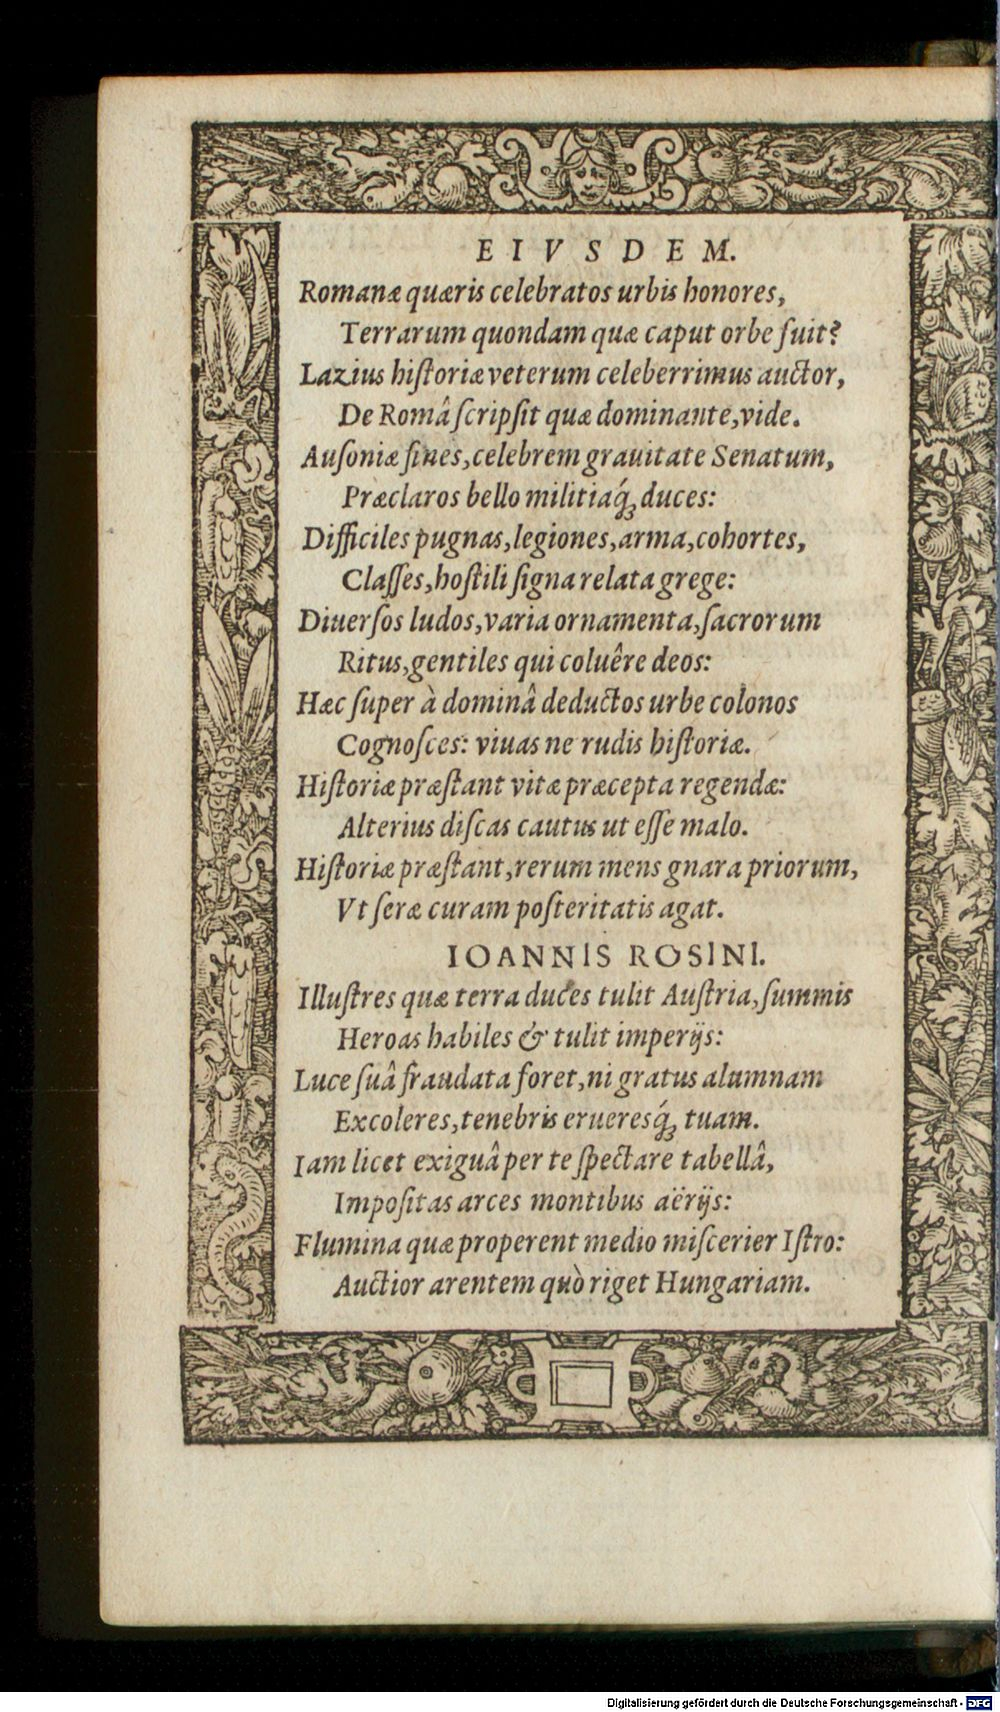 EIVSDEM.
Romanæ quæris celebratos urbis honores,
Terrarum quondam quæ caput orbe fuit?
Lazius hiſtoriæ veterum celeberrimus auctor,
De Româ ſcripſit quæ dominante, vide.
Auſoniæ fines, celebrem grauitate Senatum,
Præclaros bello militiaq́ꝫ duces:
Difficiles pugnas, legiones, arma, cohortes,
Claſſes, hoſtili ſigna relata grege:
Diuerſos ludos, varia ornamenta, ſacrorum
Ritus, gentiles qui coluêre deos:
Hæc ſuper à dominâ deductos urbe colonos
Cognoſces: viuas ne rudis hiſtoriæ.
Hiſtoriæ præſtant vitæ præcepta regendæ:
Alterius diſcas cautus ut eſſe malo.
Hiſtoriæ præſtant, rerum mens gnara priorum,
Vt ſeræ curam poſteritatis agat.
IOANNIS ROSINI.
Illuſtres quæ terra duces tulit Auſtria, ſummis
Heroas habiles & tulit imperijs:
Luce ſuâ fraudata foret, ni gratus alumnam
Excoleres, tenebris erueresq́ꝫ tuam.
Iam licet exiguâ per te ſpectare tabellâ,
Impoſitas arces montibus aërijs:
Flumina quæ properent medio miſcerier Iſtro:
Auctior arentem quò riget Hungariam.
Digitalisierung gefördert durch die Deutsche Forschungsgemeinschaft - DFG